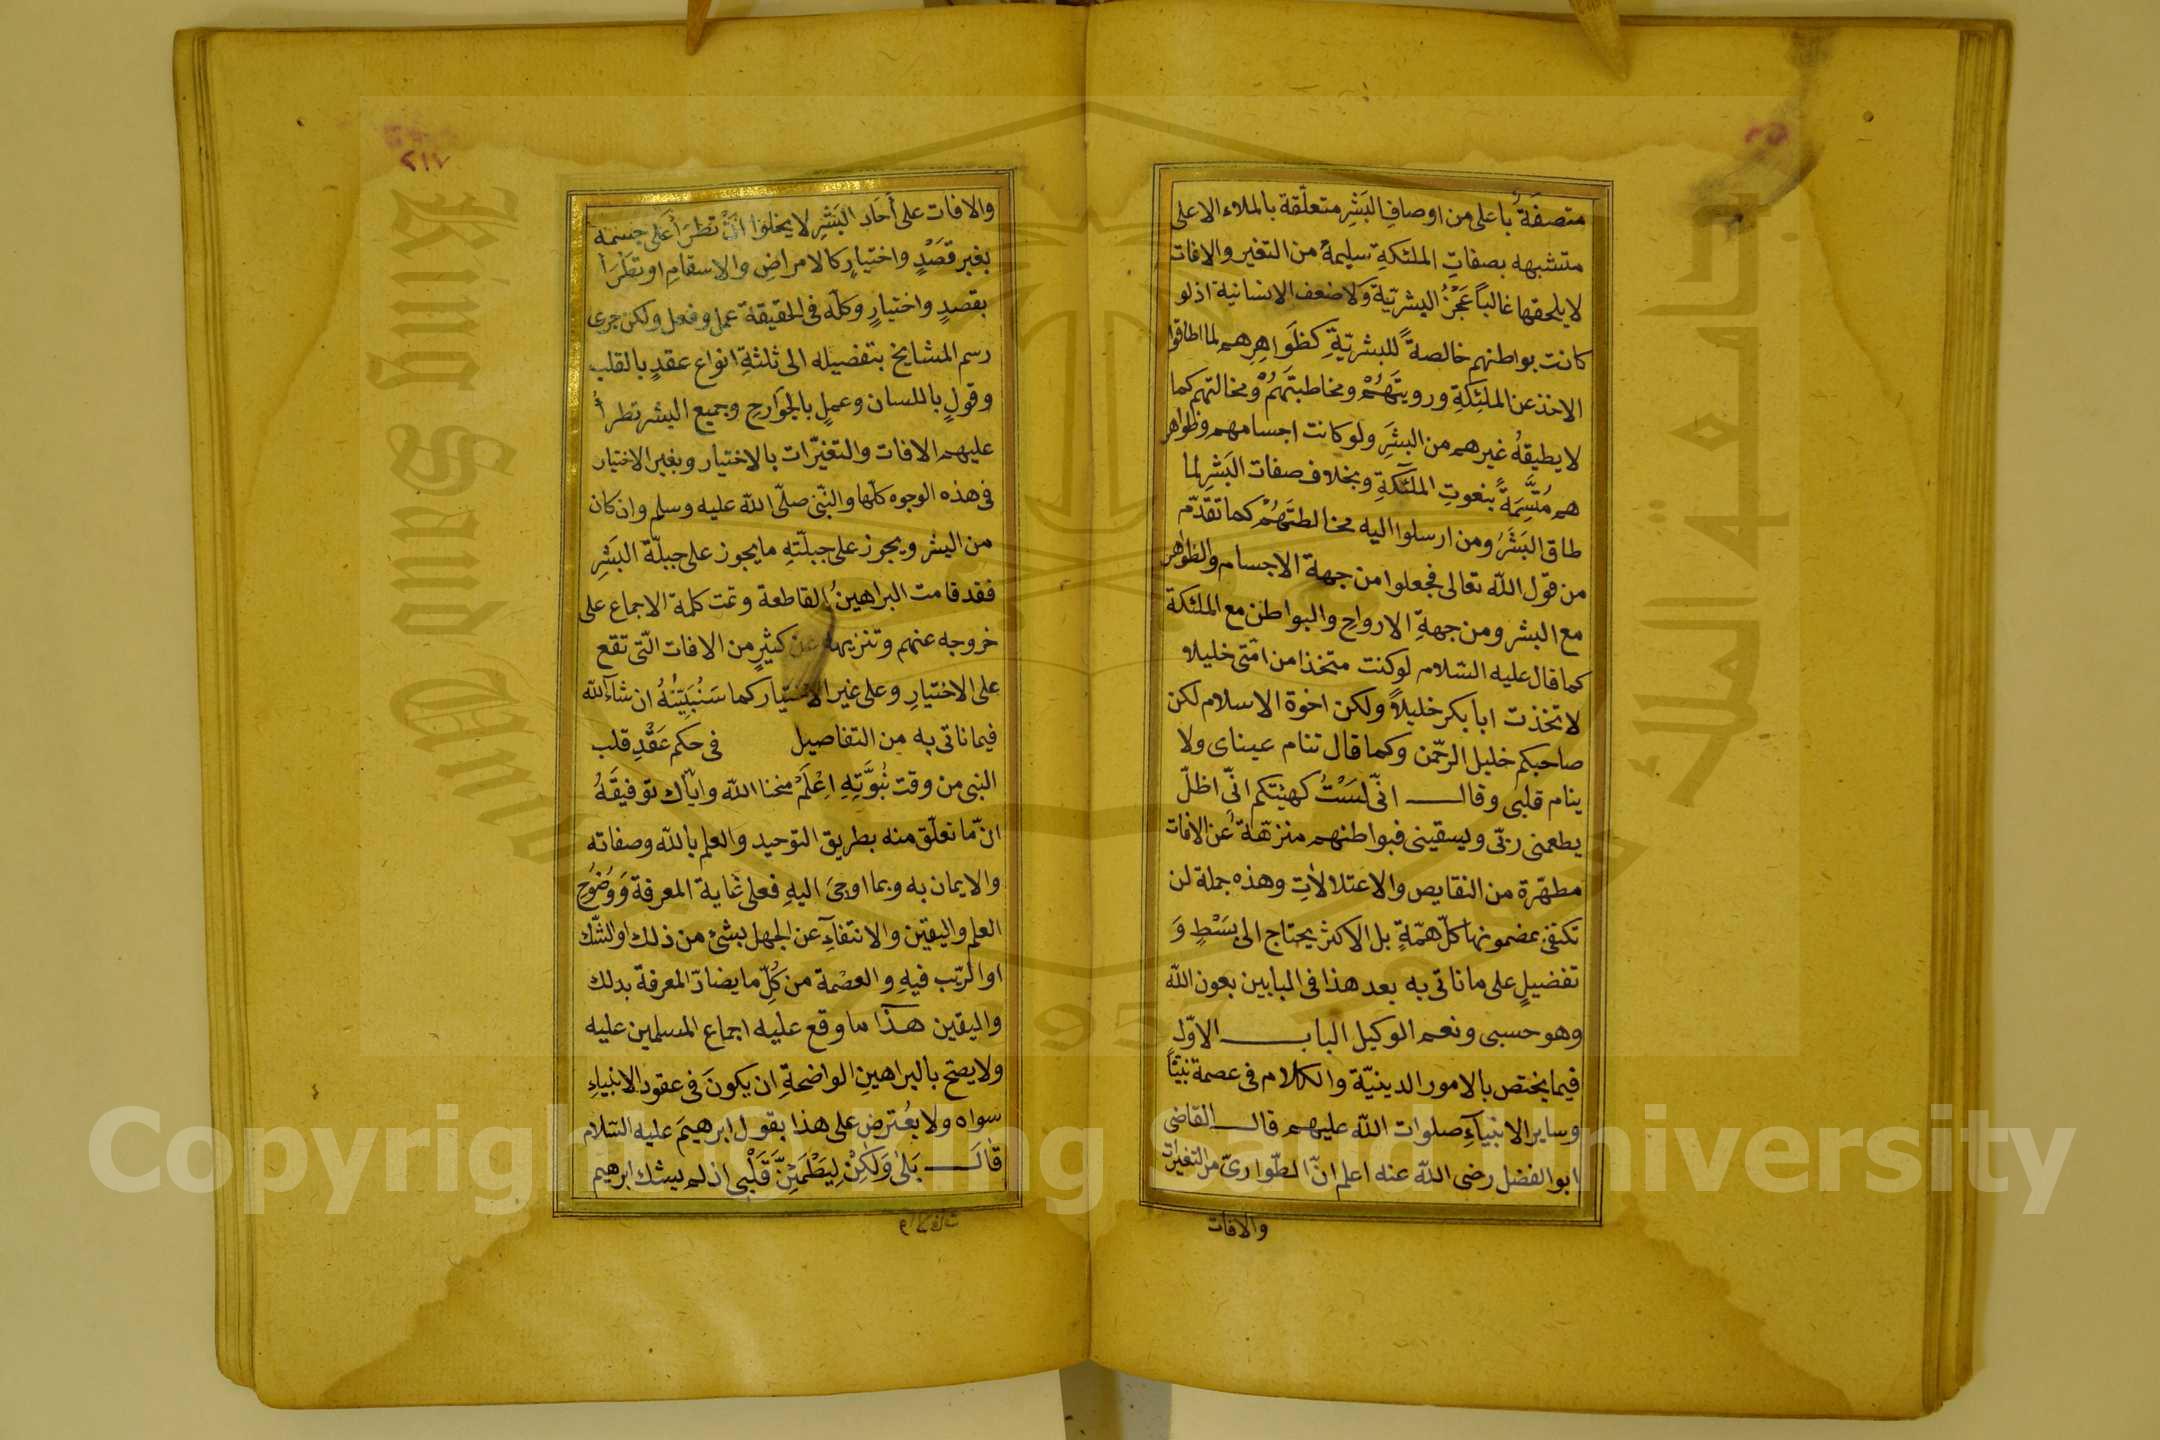 متصفةٌ باعلى من اوصافِ البَشِرِ متعلّقة بالملاء الاعلى
متشبهه بصفاتِ الملئكةِ سليمةً من التغير والافات
لا يلحقها غالباً عَجْزُ البشريّة ولا ضعف الانسانية اذ لو
كانت بواطنهم خالصةً للبشريّةِ كظَواهِرِهم لما اطاقوا
الاخذ عن الملئِكةِ ورويتَهُمْ ومخاطبتَهُمْ ومخالتهم كما
لا يطيقهُ غيرهم من البشَرِ ولو كانت اجسامهم وظواهر
هم مُتَّسِمَةً بنعوتِ الملَٓئكةِ وبخلاف صفات البَشَرِ لما
طاق البَشَرُ ومن ارسلوا اليه مخالطتَهُمْ كما تقدّم
من قول اللّه تعالى فجعلوا من جهة الاجسام والظواهر
مع البشر ومن جهةِ الارواحِ والبواطن مع الملئكة
كما قال عليه السّلام لو كنت متخذا من امّتى خليلا
لا تخذت ابا بكر خليلاً ولكن اخوة الاسلام لكن
صاحبكم خليل الرحّمن وكما قال تنام عيناى ولا
ينام قلبى وقال انّى لسَتُ كهيئتكم انّى اظلّ
يطعمنى ربّى ويسقينى فبواطنهم منزهّةٌ عن الافات
مطهّرة من النقايص والاعتلالاتِ وهذه جملة لن
تكتفى بمضمونها كلّ همّةٍ بل الاكثر يحتاج الى بَسْطٍ وَ
تفضيلٍ على ما ناتى به بعد هذا فى البابين بعون اللّه
وهو حسبى ونعم الوكيل الباب الاوّل
فيما يختص بالامور الدينيّة والكلام فى عصمة نبيّنا
وساير الانبيآءِ صلوات اللّه عليهم قال القاضى
ابو الفضل رضى اللّه عنه اعلم انّ الطّوارىَ من التغيرات
والافات
٢١٧
والافات على أحَادِ البَشَرِ لا يخلوا انْ تطرَأ على جسمه
بغير قصَدْ واختيارٍ كالامراضِ والاسقامِ او تطَرَأ
بقصدٍ واختيارٍ وكلّه فى الحقيقة عمل وفعل ولكن جرى
رسم المشايخ بتفضيله الى ثلثةِ انواع عقدٍ بالقلب
وقولٍ باللسان وعملٍ بالجوَارحِ وجميع البشر تطرأُ
عليهم الافات والتغيّرات بالاختيار وبغير الاختيار
فى هذه الوجوه كلّها والنّبى صلّى اللّه عليه وسلم وان كان
من البشر ويجوز على جبلّتهِ ما يجوز على جبلّة البَشَرِ
فقد قامت البراهينُ القاطعة وتمت كلمة الاجماع على
خروجه عنهم وتنزيهه عن كثيرٍ من الافات الّتى تقع
على الاختيارِ وعلى غير الاختيار كما سَنُبَيِّنُهُ ان شآء اللّه
فيما ناتى به من التفاصيل فى حكم عَقْدِ قلب
النبى من وقت نُبُوَّتِهِ اِعْلَمْ منحنا اللّه وايّاك توفيقَهُ
انّ ما تعلّق منه بطريق التوحيد والعلم باللّه وصفاته
والايمان به وبما اوحِىَ اليهِ فعلى غاية المعرفة وَوُضوُحِ
العلم واليقين والانتفآءِ عن الجهل بشئ من ذلك او الشّك
او الرّيب فيهِ والعصْمة من كُلّ ما يضادّ المعرفة بذلك
واليقين هذا ما وقع عليه اجماع المسلمين عليه
ولا يصحّ بالبراهينِ الواضحةِ ان يكونَ فى عقود الانبياءِ
سواه ولا يعُترض على هذا بقول ابرهيمَ عليه السّلام
قالَ بَلىٰ وَلَكِنْ لِيَطْمَئِنَّ قَلْبى اذ لم يشك ابرهيم
King Saud University
جامعة الملك سعود
1957
Copyright © King Saud University